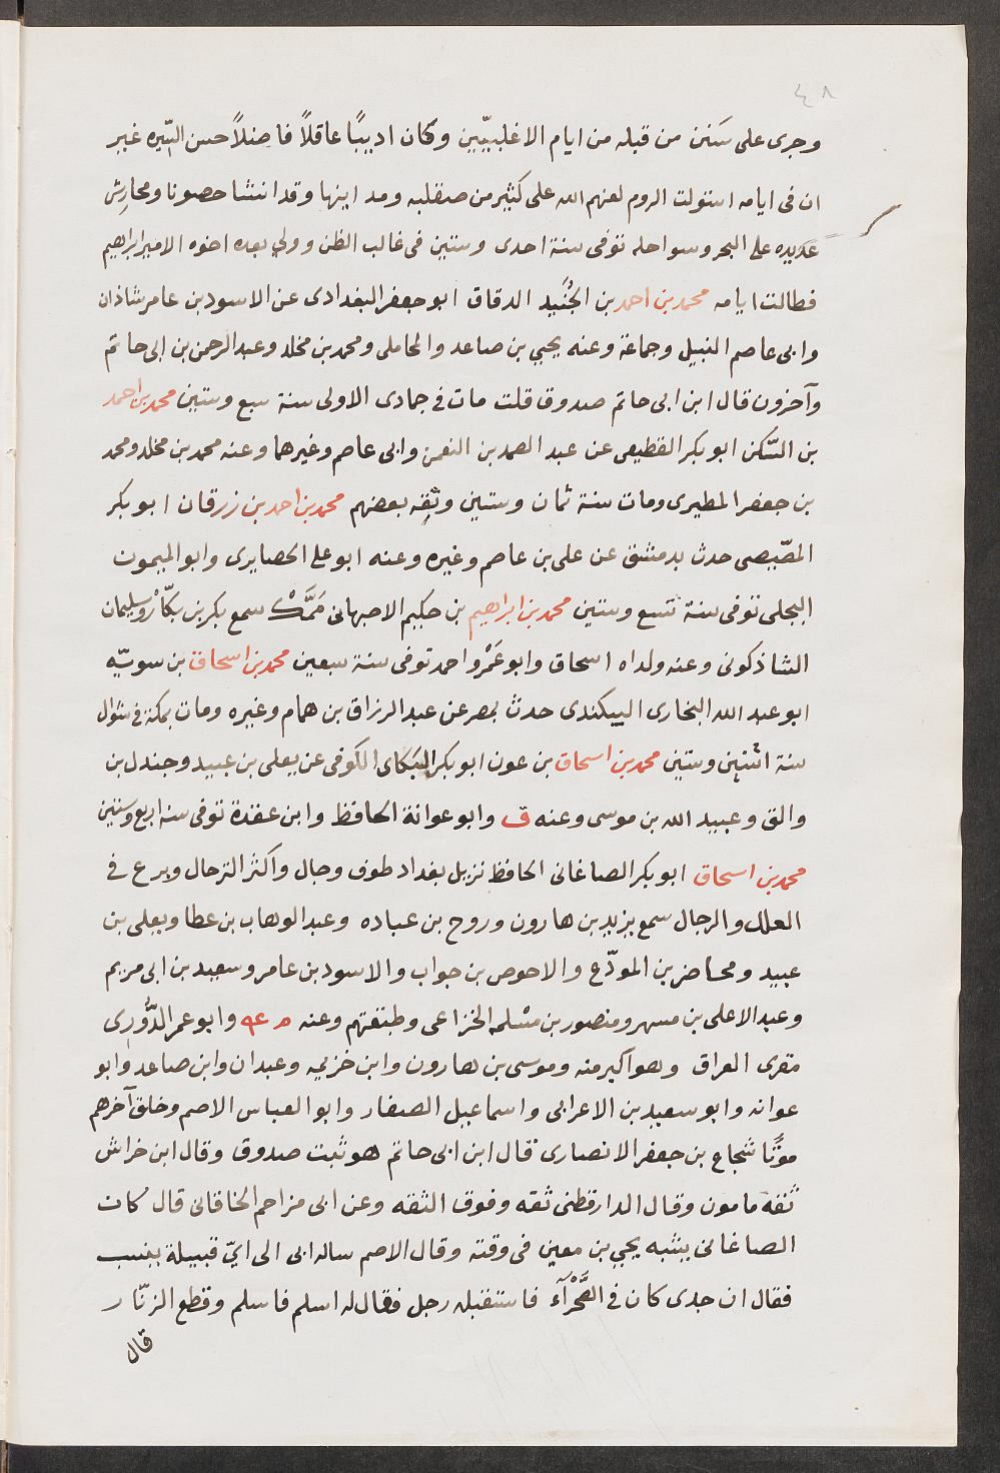 ٤٨
وجرى على سَنَن من قبله من ايام الاغلبيّين وكان اديبًا عاقلًا فاضلًا حسن السّيره غير
ان فى ايامه استولت الروم لعنهم الله على كثير من صقلبه ومداينها وقد انشا حصونا ومحارِسَ
عديده على البحر وسواحله توفى سنة احدى وستين فى غالب الظن وولي بعده اخوه الامير ابراهيم
فطالت ايامه محمد بن احمد بن الجُنَيد الدقاق ابو جعفر البغدادى عن الاسود بن عامر شاذان
وابى عاصم النبيل وجماعة وعنه يحيي بن صاعد والمحاملى ومحمد بن مخلد وعبد الرحمن بن ابى حاتم
وآخرون قال ابن ابى حاتم صدوق قلت مات فى جمادى الاولى سنة سبع وستين محمد بن احمد
بن السّكن ابو بكر القطيعى عن عبد الصمد بن النعمن وابى عاصم وغيرهما وعنه محمد بن مخلد ومحمد
بن جعفر المطيرى ومات سنة ثمان وستين وثقه بعضهم محمد بن احمد بن زرقان ابو بكر
المصّيصى حدث بدمشق عن على بن عاصم وغيره وعنه ابو على الحصايرى وابو الميمون
البجلى توفى سنة تسع وستين محمد بن ابراهيم بن حكيم الاصبهانى مَمَّكْ سمع بكر بن بكّار وسليمان
الشاذكونى وعنه ولداه اسحاق وابو عَمْرو احمد توفى سنة سبعين محمد بن اسحاق بن سويّه
ابو عبد الله البخارى البيكندى حدث بمصر عن عبد الرزاق بن همام وغيره ومات بمكة فى شوال
سنة اثنين وستين محمد بن اسحاق بن عون ابو بكر البَكاى الكوفى عن يعلى بن عبيد وجندل بن
والق وعبيد الله بن موسى وعنه ق وابو عوانة الحافظ وابن عقدة توفى سنه اربع وستين
محمد بن اسحاق ابو بكر الصاغانى الحافظ نزيل بغداد طوف وجال واكثر الترحال وبرع فى
العلل والرجال سمع يزيد بن هارون وروح بن عباده وعبد الوهاب بن عطا ويعلى بن
عبيد ومحاضر بن المودّع والاحوص بن جواب والاسود بن عامر وسعيد بن ابى مريم
وعبد الاعلى بن مسهر ومنصور بن مسلمه الخزاعى وطبقتهم وعنه م عه وابو عمر الدُّورِى
مقرى العراق وهو اكبر منه وموسى بن هارون وابن خزيمه وعبدان وابن صاعد وابو
عوانه وابو سعيد بن الاعرابى واسماعيل الصفار وابو العباس الاصم وخلق آخرهم
موتًا شجاع بن جعفر الانصارى قال ابن ابى حاتم هو ثبت صدوق وقال ابن خراش
ثقة مامون وقال الدارقطنى ثقه وفوق الثقه وعن ابى مزاحم الخاقانى قال كان
الصاغانى يشبه يحيي بن معين فى وقته وقال الاصم ساله ابى الى ايّ قبيلة ينسب
فقال ان جدى كان فى الصَّحْرآء فاستقبله رجل فقال له اسلم فاسلم وقطع الزنّار
قال